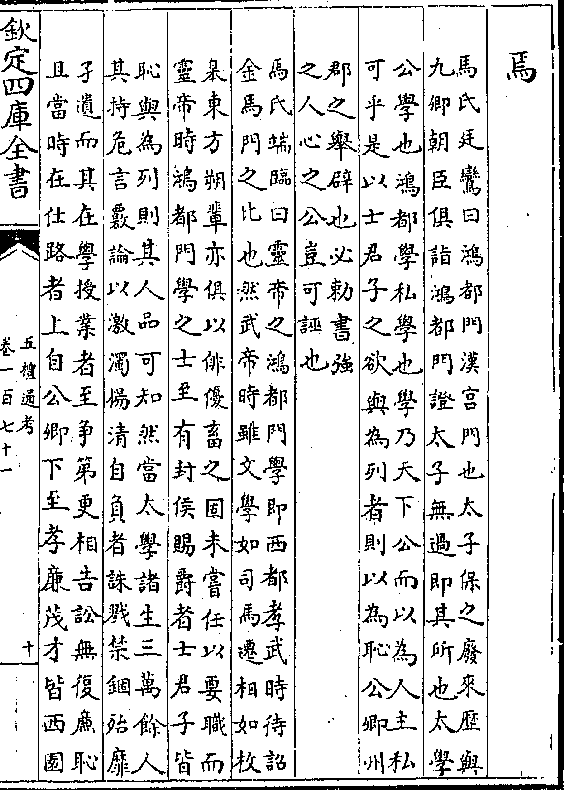 焉
馬氏廷鸞曰鴻都門漢宫門也太子保之廢來歴與
九卿朝臣俱詣鴻都門證太子無過即其所也太學
公學也鴻都學私學也學乃天下公而以為人主私
可乎是以士君子之欲與為列者則以為恥公卿州
郡之舉辟也必勅書強
之人心之公豈可誣也
馬氏端臨曰靈帝之鴻都門學即西都孝武時待詔
金馬門之比也然武帝時雖文學如司馬遷相如枚
臯東方朔輩亦俱以俳優畜之固未嘗任以要職而
靈帝時鴻都門學之士至有封侯賜爵者士君子皆
恥與為列則其人品可知然當太學諸生三萬餘人
其持危言覈論以激濁揚清自負者誅戮禁錮殆靡
孑遺而其在學授業者至争第更相告訟無復廉恥
且當時在仕路者上自公卿下至孝廉茂才皆西園
欽定四庫全書
五禮通考
卷一百七十一
十